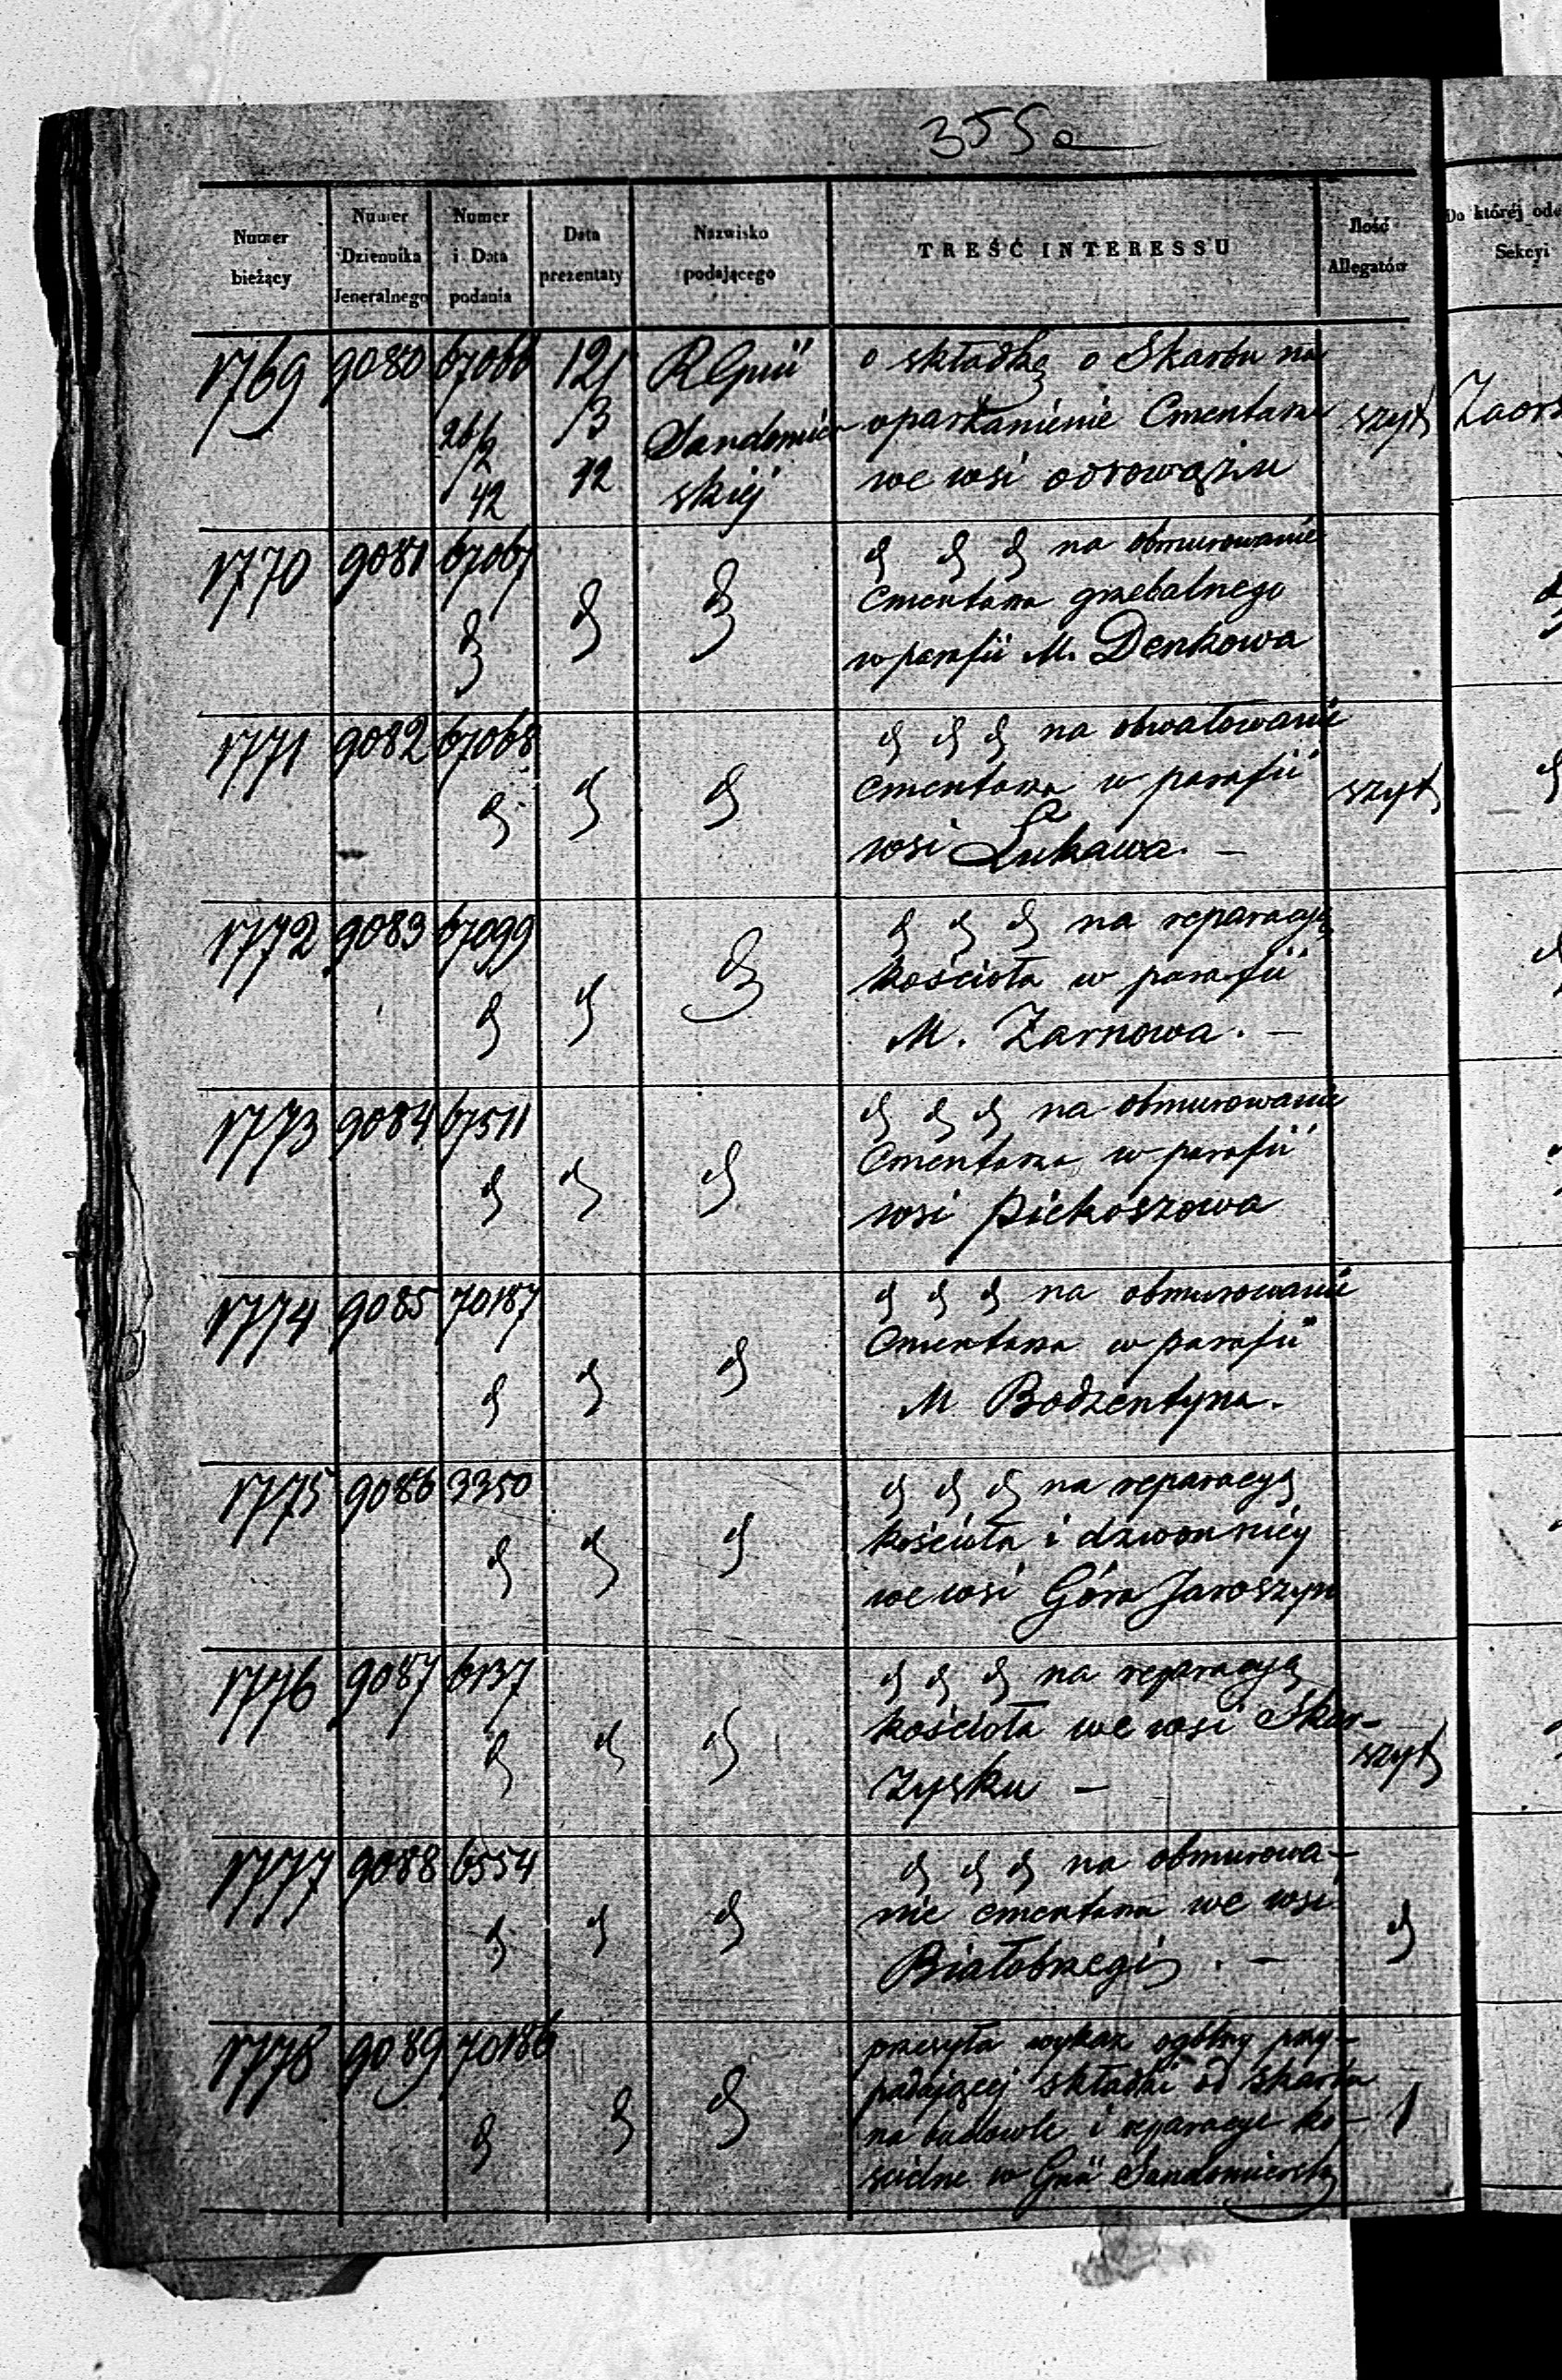 355a
Numer bieżący | Numer Dziennika Jeneralnego | Numer i Data podania | Data prezentaty | Nazwisko podającego | TREŚĆ INTERESSU | Ilość Allegatów | Do któréj
Sekcyi
1769 | 9080 | 67066 | 12/ | RGpii | o składkę o Skarbu na
26/2 | 3 | Sandomier | oparkanienie Cmentarza | szyt
42 | 42 | skiéj | we wsi Odrowążu
1770 | 9081 | 67067 | d d d na obmurowanie
d | d | d | Cmentarza grzebalnego
w parafii M. Denkowa
1771 | 9082 | 67068 | d d d na obwałowanie
d | d | d | Cmentarza w parafii | szyt
wsi Łukawa. —
1772 | 9083 | 67099 | d d d na reparacyą
d | d | d | kościoła w parafii
M. Żarnowa. —
1773 | 9084 | 67511 | d d d na obmurowanie
d | d | d | Cmentarza w parafii
wsi Piekoszowa
1774 | 9085 | 70187 | d d d na obmurowanie
d | d | d | Cmentarza w parafii
M Bodzentyna.
1775 | 9086 | 3350 | d d d na reparacyą
d | d | d | kościoła i dzwonnicy
we wsi Góra Jaroszyn
1776 | 9087 | 6137 | d d d na reparacyą
d | d | d | kościoła we wsi Skar- | szyt
żysku —
1777 | 9088 | 6554 | d d d na obmurowa-
d | d | d | nie cmentarza we wsi | d
Białobrzegi. —
1778 | 9089 | 70186 | przesyła wykaz ogólny przy-
d | d | d | padającej składki od Skarbu
na budowle i reparacye ko- | 1
ścielne w Gnii Sandomierskiej